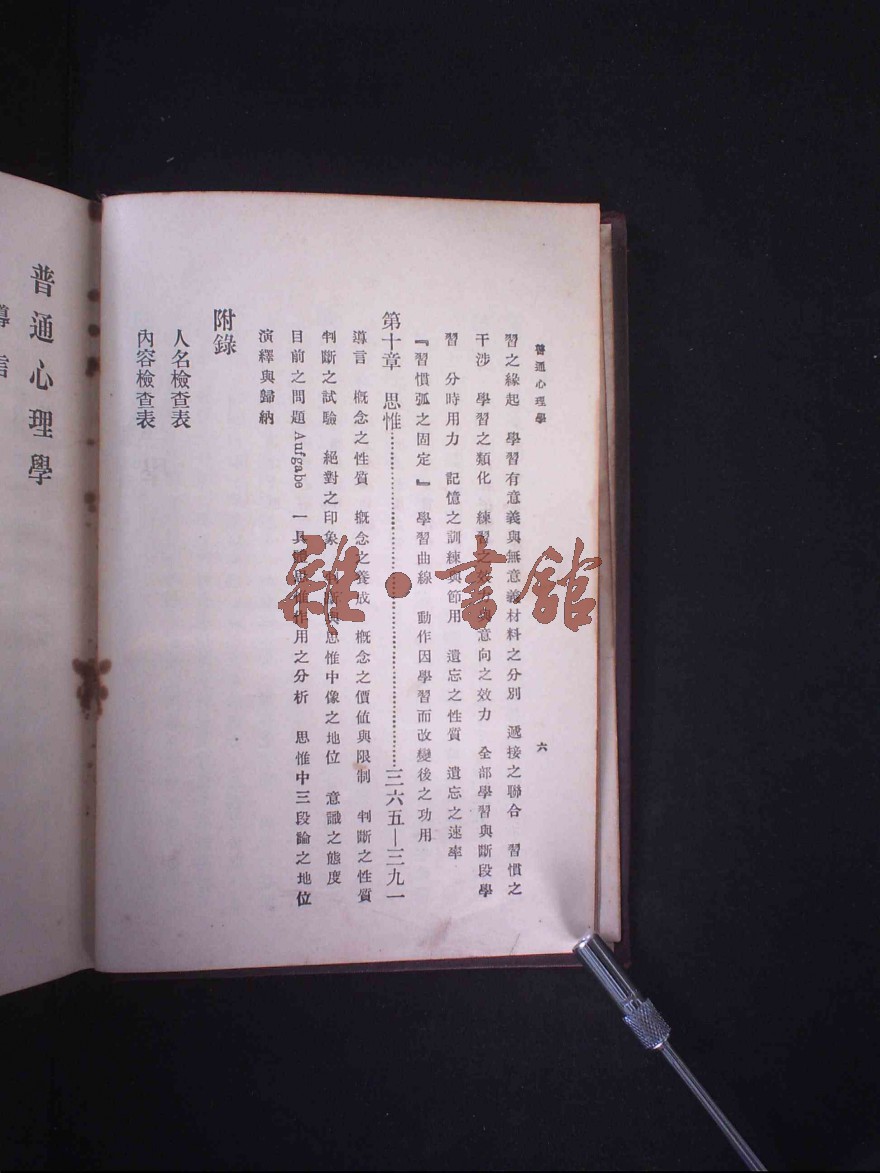 普通心理學
六
習之緣起 學習有意義與無意義材料之分別 遞接之聯合 習慣之
干涉 學習之類化 練習之效力與意向之效力 全部學習與斷段學
習 分時用力 記憶之訓練與節用 遺忘之性質 遺忘之速率
『習慣弧之固定』 學習曲線 動作因學習而改變後之功用
第十章 思惟……三六五—三九一
導言 概念之性質 概念之養成 概念之價值與限制 判斷之性質
判斷之試驗 絕對之印象 判斷與思惟中像之地位 意識之態度
目前之問題 Aufgabe 一具體思惟作用之分析 思惟中三段論之地位
演繹與歸納
附錄
人名檢查表
內容檢查表
普通心理學
導言
雜·書館